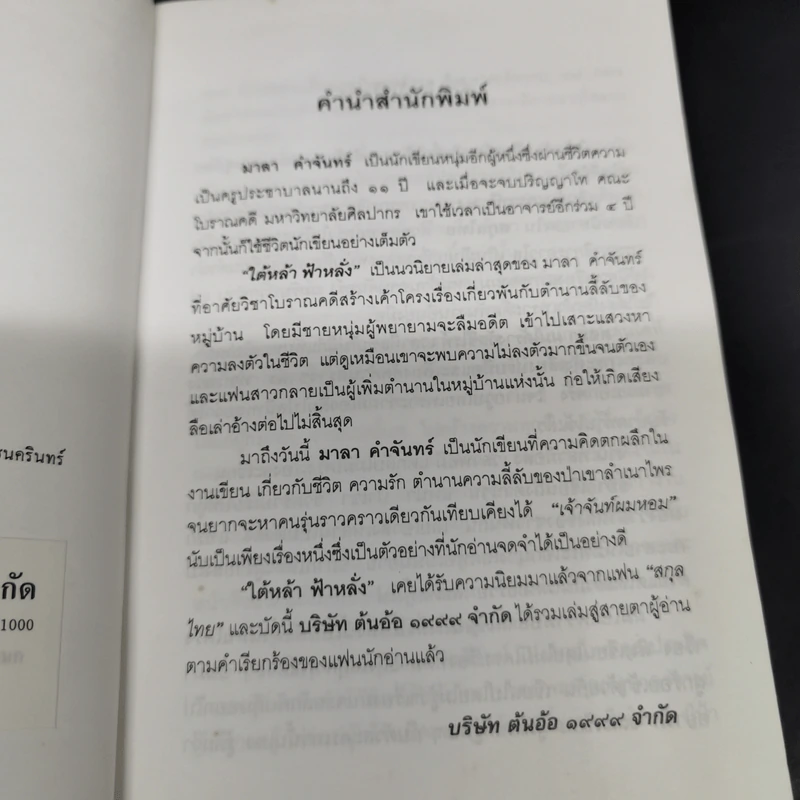 คำนำสำนักพิมพ์
มาลา คำจันทร์ เป็นนักเขียนหนุ่มอีกผู้หนึ่งซึ่งผ่านชีวิตความ
เป็นครูประชาบาลนานถึง ๑๑ ปี และเมื่อจะจบปริญญาโท คณะ
โบราณคดี มหาวิทยาลัยศิลปากร เขาใช้เวลาเป็นอาจารย์อีกร่วม ๔ ปี
จากนั้นก็ใช้ชีวิตนักเขียนอย่างเต็มตัว
“ใต้หล้า ฟ้าหลั่ง” เป็นนวนิยายเล่มล่าสุดของ มาลา คำจันทร์
ที่อาศัยวิชาโบราณคดีสร้างเค้าโครงเรื่องเกี่ยวพันกับตำนานลี้ลับของ
หมู่บ้าน โดยมีชายหนุ่มผู้พยายามจะลืมอดีต เข้าไปเสาะแสวงหา
ความลงตัวในชีวิต แต่ดูเหมือนเขาจะพบความไม่ลงตัวมากขึ้นจนตัวเอง
และแฟนสาวกลายเป็นผู้เพิ่มตำนานในหมู่บ้านแห่งนั้น ก่อให้เกิดเสียง
ลือเล่าอ้างต่อไปไม่สิ้นสุด
มาถึงวันนี้ มาลา คำจันทร์ เป็นนักเขียนที่ความคิดตกผลึกใน
งานเขียน เกี่ยวกับชีวิต ความรัก ตำนานความลี้ลับของป่าเขาลำเนาไพร
จนยากจะหาคนรุ่นราวคราวเดียวกันเทียบเคียงได้ “เจ้าจันท์ผมหอม”
นับเป็นเพียงเรื่องหนึ่งซึ่งเป็นตัวอย่างที่นักอ่านจดจำได้เป็นอย่างดี
“ใต้หล้า ฟ้าหลั่ง” เคยได้รับความนิยมมาแล้วจากแฟน “สกุล
ไทย” และบัดนี้ บริษัท ต้นอ้อ ๑๙๙๙ จำกัด ได้รวมเล่มสู่สายตาผู้อ่าน
ตามคำเรียกร้องของแฟนนักอ่านแล้ว
บริษัท ต้นอ้อ ๑๙๙๙ จำกัด
นครินทร์
กัด
1000